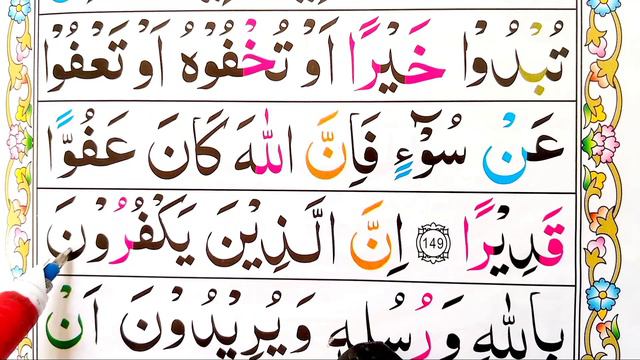 تُبْدُوْا خَيْرًا اَوْ تُخْفُوْهُ اَوْ تَعْفُوْا
عَنْ سُوْٓءٍ فَاِنَّ اللّٰهَ كَانَ عَفُوًّا
قَدِيْرًا ﴿149﴾ اِنَّ الَّذِيْنَ يَكْفُرُوْنَ
بِاللّٰهِ وَرُسُلِهٖ وَيُرِيْدُوْنَ اَنْ